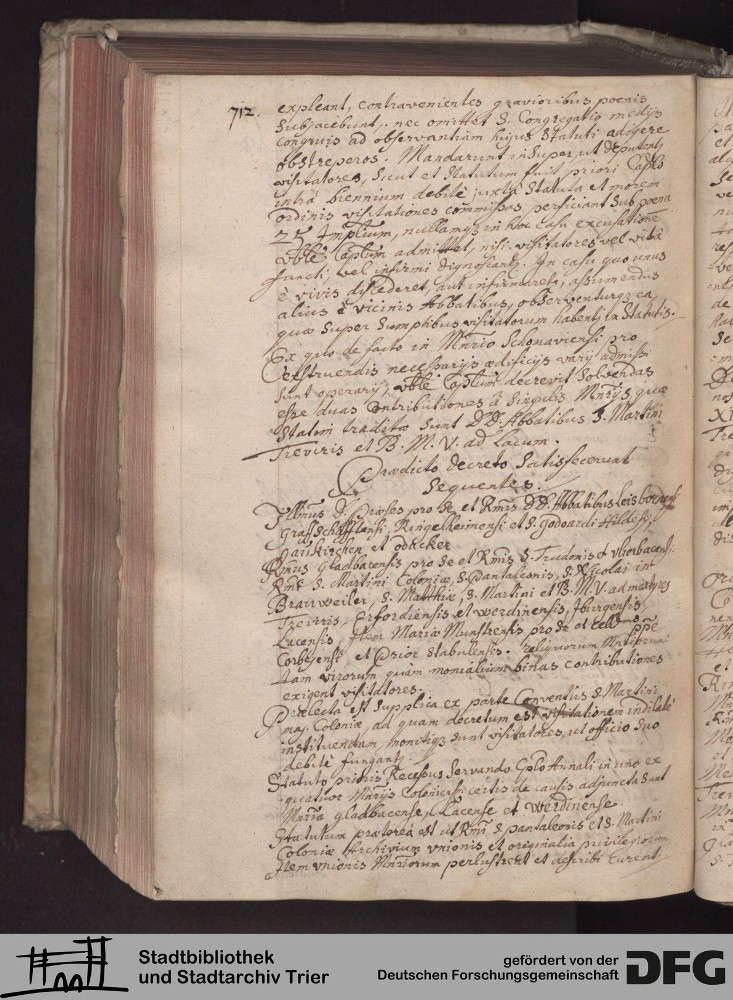 712.
expleant, contravenientes gravioribus poenis
subjacebunt, nec omittet S. Congregatio medijs
congruis ad observantiam hujus Statuti adigere
obstreperos. Mandarunt insuper, ut deputentr
visitatores, sicut et Statutum fuit priori Caplo
intra biennium debitè juxta Statuta et morem
ordinis visitationes commissas perficiant sub poena
25 Implium, nullamqz in hoc casu excusatione
vble Caplum admittet, nisi visitatores vel vitâ
functi, vel infirmi dignoscantr. In casu quo unus
è vivis discederet, aut infirmaretr, assumendus
alius è vicinis Abbatibus, observenturqz ea
quae super sumptibus visitatorum habentr in Statutis.
Ex quo de facto in Mnrio Schonaviensi pro
exstruendis necessarijs aedificijs varij admissi
sunt operarij, vble Caplum decrevit solvendas
esse duas Contributiones à singulis Mnrijs quae
statim traditae sunt DD. Abbatibus S. Martini
Treviris et B. M. V. ad Lacum.
Praedicto decreto satisfecerunt
sequentes.
Illmus D. Praeses pro se et Rmis DD. Abbatibus Leisbornensi
Grasschafftensi, Ringelheimensi et S. Godoardi Hildesij,
et odacker
Rmus Gladbacensis pro se et Rmis S. Trudonis et
Rmi S. Martini Coloniae, S. Pantaleonis, S. Nicolai in
Brauweiler, S. Matthiae, S. Martini et B. M. V. ad martyres
Treviris, Erfordiensis et Werdinensis, Iburgensis
Lacensis, Item Mariae Munstrensis pro se et
Corbejensi, et Prior Stabulensis. reliquorum
tam virorum quàm monialium binas contributiones
exigent visitatores.
Praelecta est supplica ex parte Conventûs S. Martini
maj. Coloniae, ad quam decretum est visitationem indilatè
instituendam, monitiqz sunt visitatores, ut officio suo
debitè fungantr.
Statuto prioris Recessus servando Cplo Annali in uno ex
quatuor Mnrijs Coloniensi certis de causis adjuncta sunt
Mnria Gladbacense, Lacense et Werdinense.
Statutum praeterea est ut Rmi S. Pantaleonis et S. Martini
Coloniae Archivium unionis et originalia privilegiorum
Item unionis Mnriorum perlustrent et describi curent
Stadtbibliothek
und Stadtarchiv Trier
gefördert von der
Deutschen Forschungsgemeinschaft
DFG